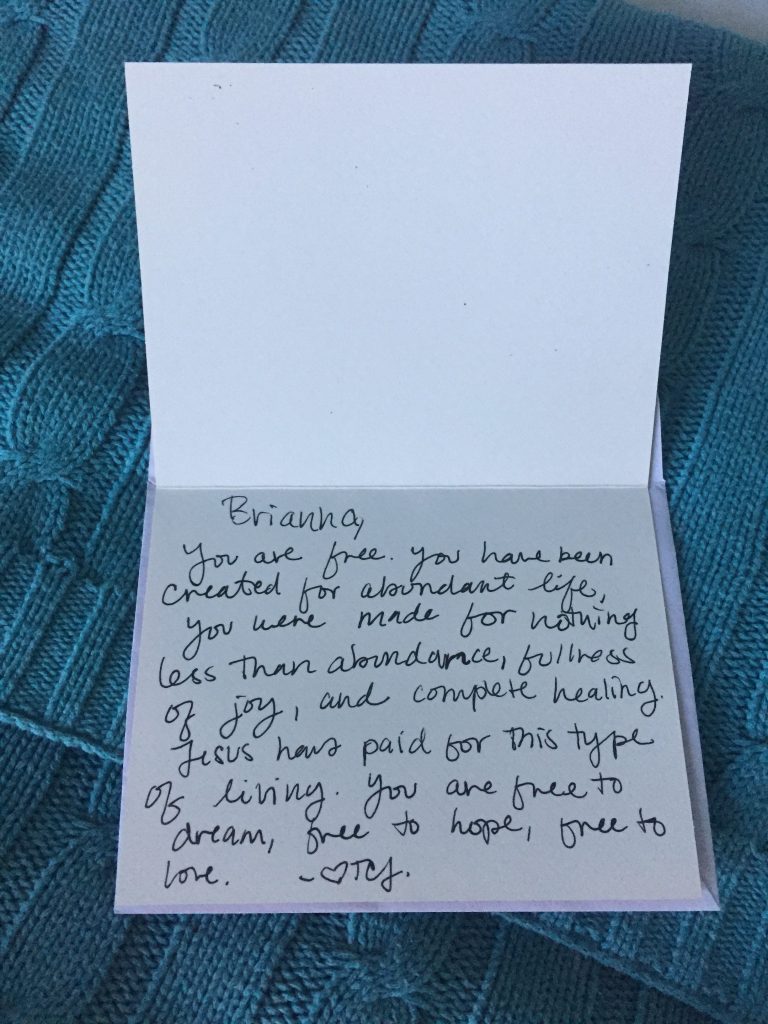 Brianna,
You are free. You have been
created for abundant life,
you were made for nothing
less than abundance, fullness
of joy, and complete healing.
Jesus has paid for this type
of living. You are free to
dream, free to hope, free to
love. -♡TCJ.